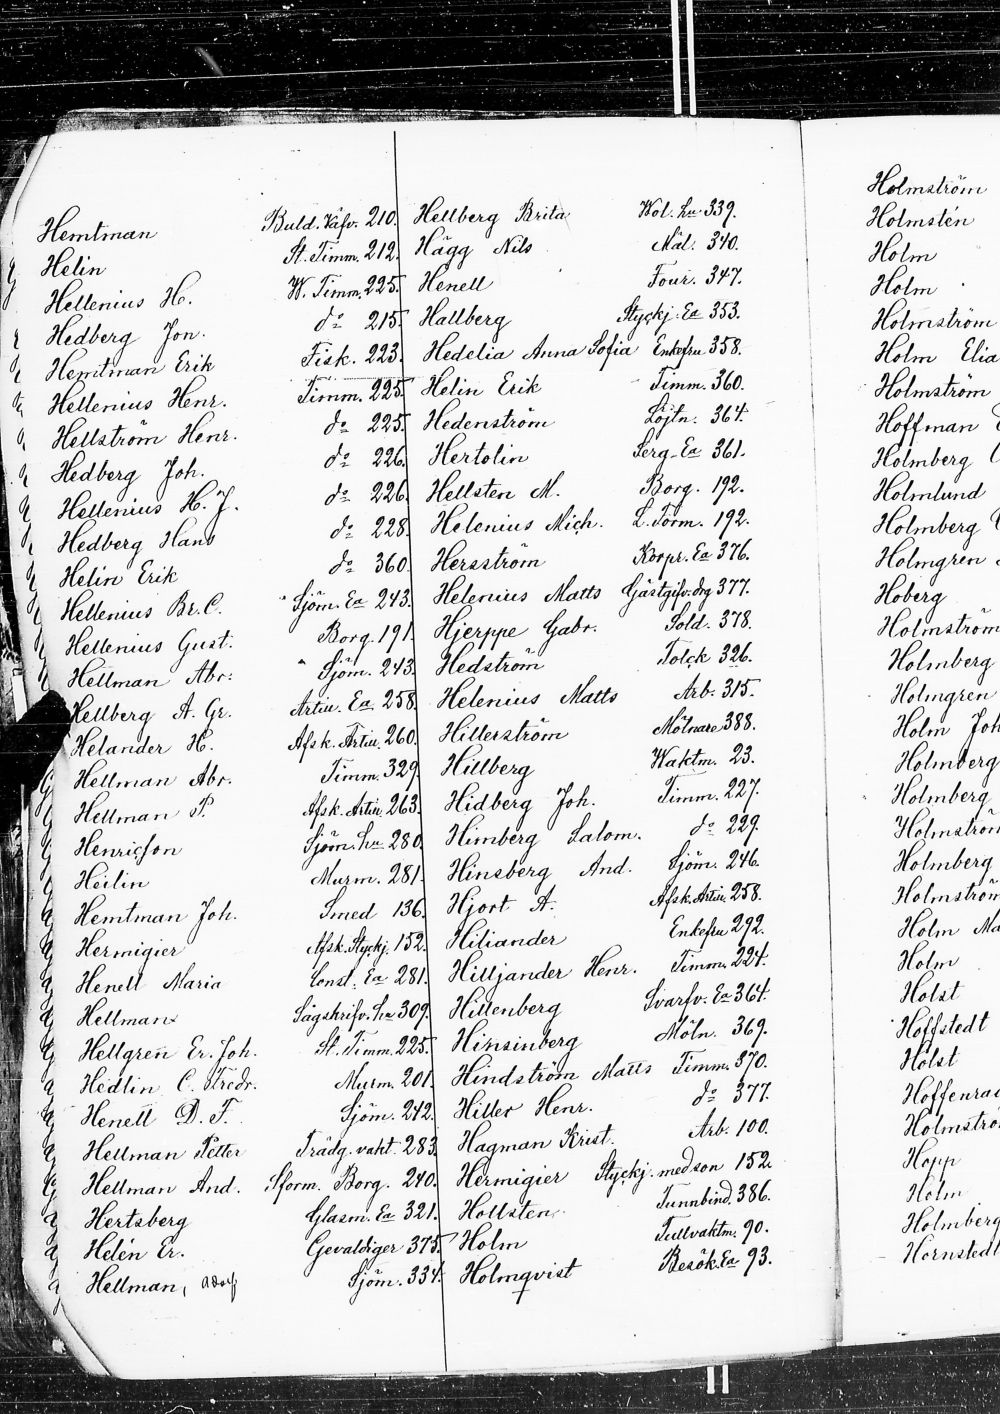 Hemtman Buld. Väfv. 210.
Helin St. Timm. 212.
Hellenius H. W. Timm. 225.
Hedberg Jon. do 215.
Hemtman Erik Fisk. 223.
Hellenius Henr. Timm. 225.
Hellström Henr. do 225.
Hedberg Joh. do 226.
Hellenius H. J. do 226.
Hedberg Hans do 228.
Helin Erik do 360.
Hellenius Br. C. Sjöm. Ea 243.
Hellenius Gust. Borg. 191.
Hellman Abr: Sjöm. 243.
Hellberg A. Gr. Artill. Ea 258.
Helander H. Afsk. Artill. 260.
Hellman Abr. Timm. 329.
Hellman P. Afsk. Artill. 263.
Henricson Sjöm. hu 280.
Heilin Murm. 281.
Hemtman Joh. Smed 136.
Hermigier Afsk. Styckj. 152.
Henell Maria Const. Ea 281.
Hellman Sågskrifv. hu 309.
Hellgren Er. Joh. St. Timm. 225.
Hedlin C. Fredr. Murm. 201.
Henell D. F. Sjöm. 242.
Hellman Petter Trädg. vakt. 283.
Hellman And. Sform. Borg. 240.
Hertsberg Glasm. Ea 321.
Helén Er. Gevaldiger 375.
Hellman, Adolf Sjöm. 334.
Hellberg Brita Vol. hu 339.
Hägg Nils Mål. 340.
Henell Four. 347.
Hallberg Styckj. Ea 353.
Hedelia Anna Sofia Enkefru 358.
Helin Erik Timm. 360.
Hedenström Löjtn. 364.
Hertolin Serg. Ea 361.
Hellsten M. Borg. 192.
Helenius Mich. L. Form. 192.
Hersström Korpr. Ea 376.
Helenius Matts Gästgifv. drg 377.
Hjerppe Gabr. Sold. 378.
Hedström Tolck 326.
Helenius Matts Arb. 315.
Hillerström Mölnare 388.
Hillberg Waktm. 23.
Hidberg Joh. Timm. 227.
Himberg Salom. do 229.
Hinsberg And. Sjöm. 246.
Hjort A. Afsk. Artill. 258.
Hiliander Enkefru 292.
Hilljander Henr. Timm. 224.
Hillenberg Svarfv. Ea 364.
Hinsinberg Möln. 369.
Hindström Matts Timm. 370.
Hiller Henr. do 377.
Hagman Krist. Arb. 100.
Hermigier Styckj. med son 152.
Hollsten Tunnbind. 386.
Holm Tullvaktm. 90.
Holmqvist Besök. Ea 93.
Holmström
Holmstén
Holm
Holm
Holmström
Holm Elia
Holmström
Hoffman
Holmberg
Holmlund
Holmberg
Holmgren
Hoberg
Holmström
Holmberg
Holmgren
Holm Joh
Holmberg
Holmberg
Holmström
Holmberg
Holmström
Holm Ma
Holm
Holst
Hoffstedt
Holst
Hoffenra
Holmströ
Hopp
Holm
Holmberg
Hornstedt